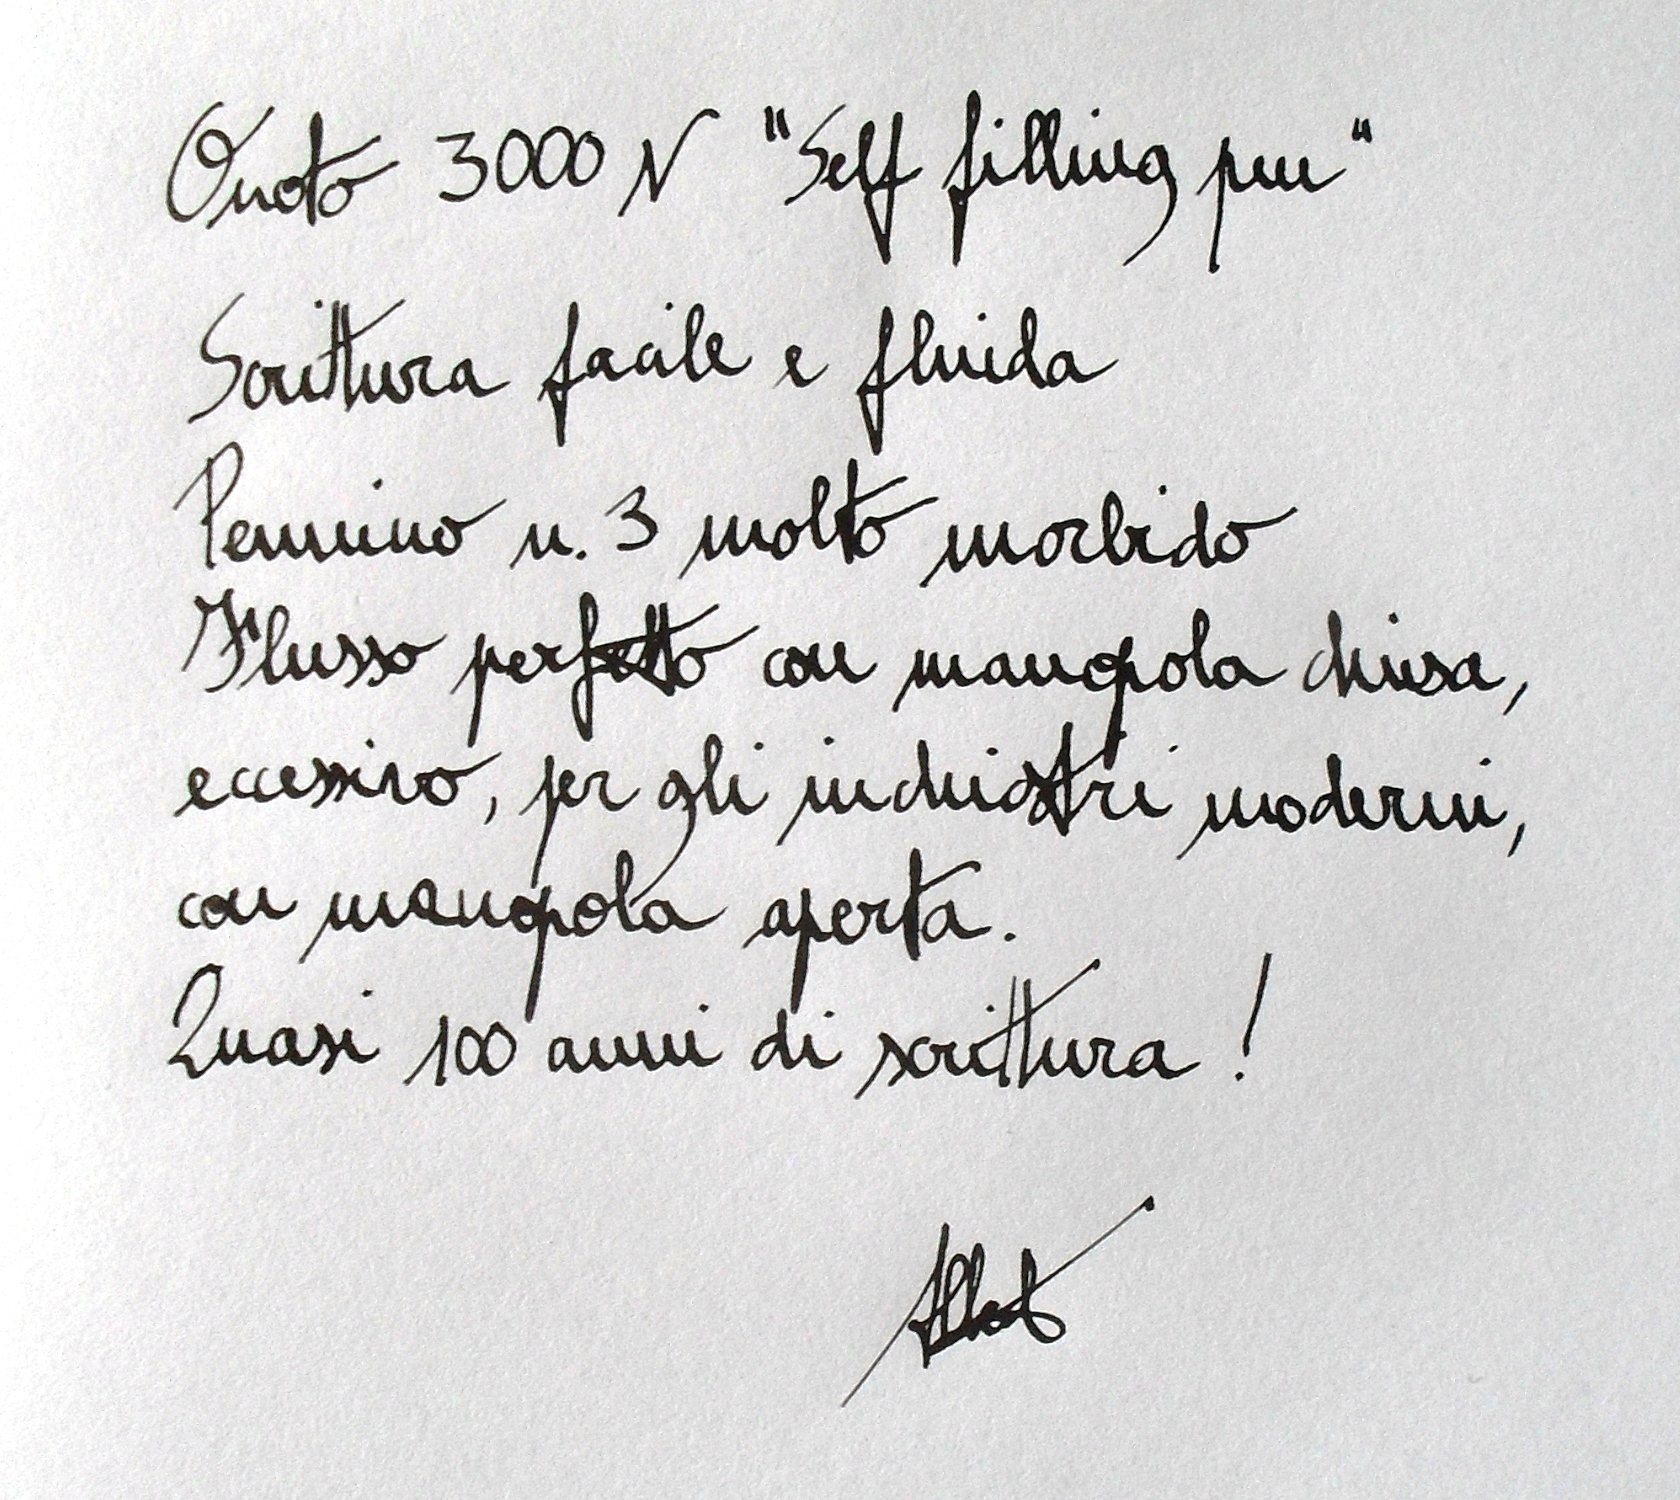 Onoto 3000 N "Self filling pen"
Scrittura facile e fluida
Pennino n. 3 molto morbido
Flusso perfetto con manopola chiusa,
eccessivo, per gli inchiostri moderni,
con manopola aperta.
Quasi 100 anni di scrittura !